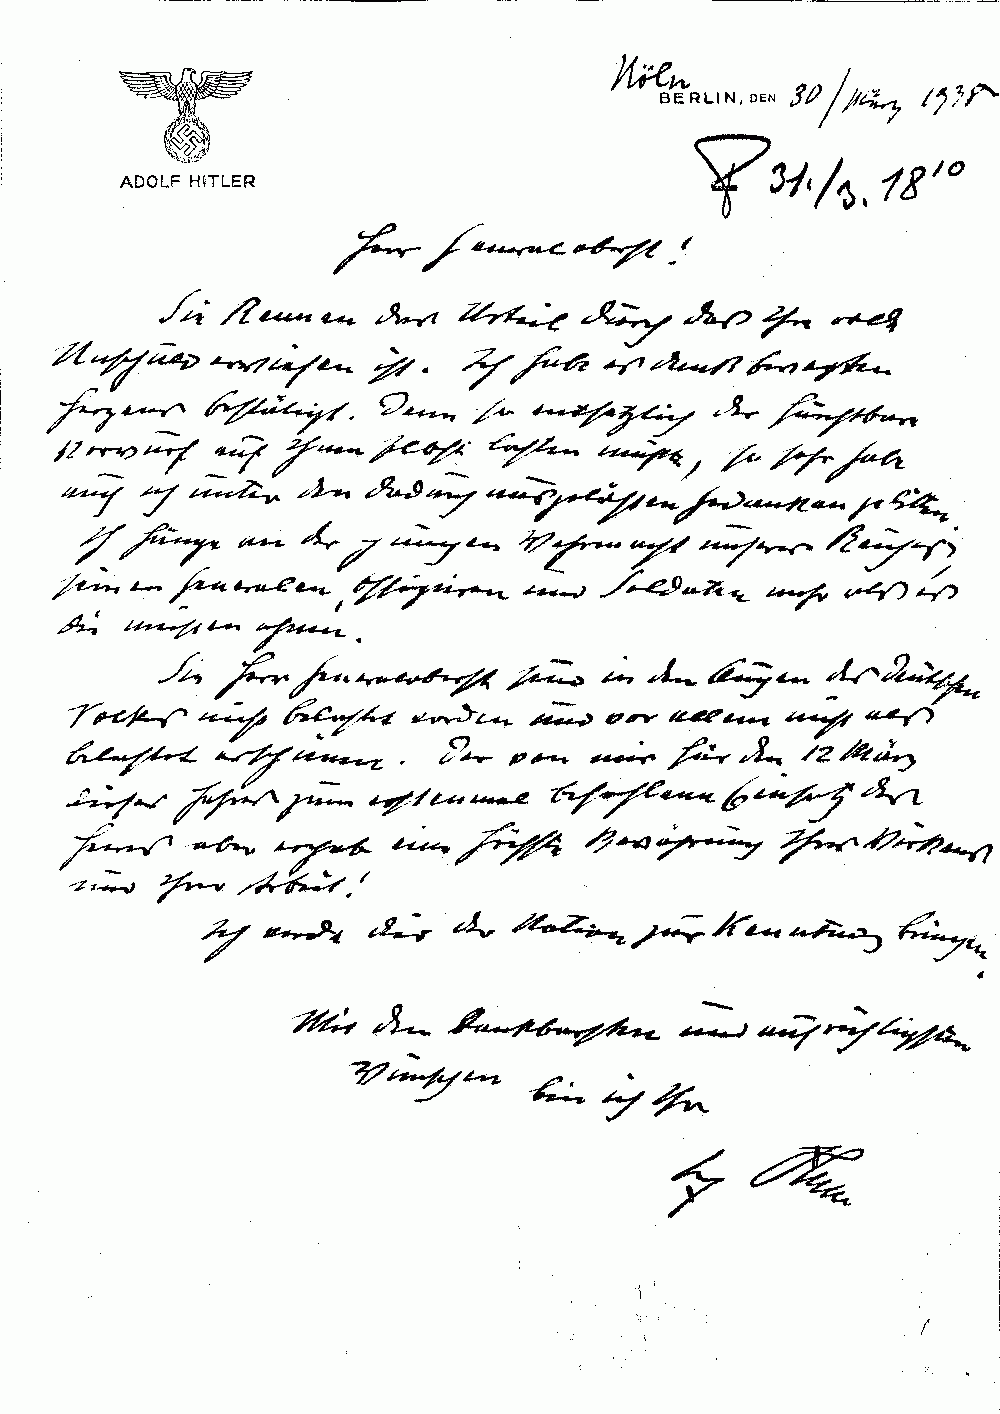 Köln
BERLIN, DEN 30/März 1938
ADOLF HITLER
31./3. 18 10
Herr Generaloberst!
Sie kennen das Urteil durch das Ihre volle
Unschuld erwiesen ist. Ich habe es dankbewegten
Herzens bestätigt. Denn so entsetzlich der furchtbare
Vorwurf auf Ihnen selbst lasten mußte, so sehr habe
auch ich unter den dadurch ausgelösten Gedanken gelitten.
Ich hänge an der jungen Wehrmacht unseres Reiches,
seinen Generalen, Offizieren und Soldaten mehr als es
die meisten ahnen.
Sie Herr Generaloberst sind in den Augen des Deutschen
Volkes nicht belastet worden und vor allem nicht als
belastet erschienen. Der von mir für den 12 März
dieses Jahres zum erstenmal befohlene Einsatz des
Heeres aber ergab eine höchste Bewährung Ihres Wirkens
und Ihrer Arbeit!
Ich werde dies der Nation zur Kenntnis bringen.
Mit den dankbarsten und aufrichtigsten
Wünschen
bin ich Ihr